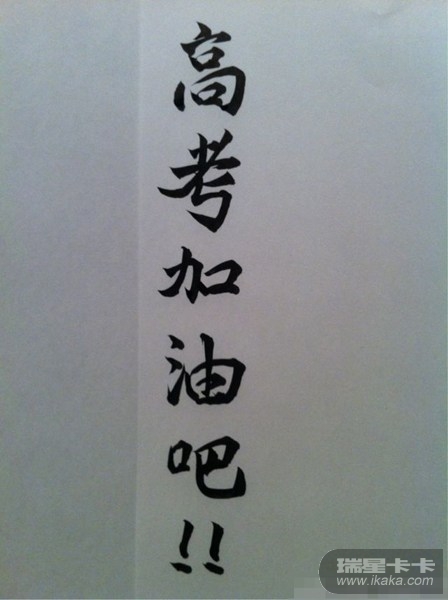 高考加油吧!!
瑞星卡卡
www.ikaka.com